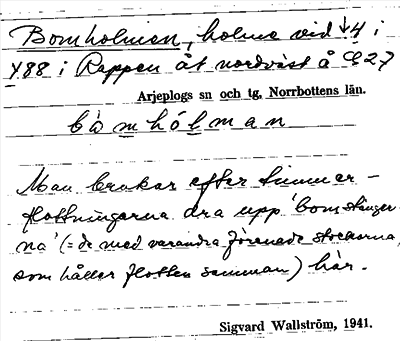 Bomholmen, holme vid ↓4 i
Y88 i Rappen åt nordväst å C27
Arjeplogs sn och tg, Norrbottens län.
bò̀mhólman
Man brukar efter timmer-
flottningarna dra upp 'bomstänger
na' (= de med varandra förenade stockarna,
som håller flotten samman) här.
Sigvard Wallström, 1941.